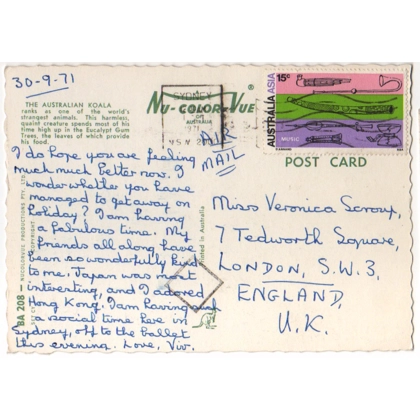 30-9-71
THE AUSTRALIAN KOALA
ranks as one of the world's
strangest animals. This harmless,
quaint creature spends most of his
time high up in the Eucalypt Gum
Trees, the leaves of which provide
his food.
NU-COLOR-VUE
SYDNEY
AUSTRALIA
1971
N.S.W. 200
15c
AUSTRALIA ASIA
MUSIC
AIR
MAIL
POST CARD
I do hope you are feeling
much much better now. I
wonder whether you have
managed to get away on
holiday? I am having
a fabulous time. My
friends all along have
been so wonderfully kind
to me. Japan was most
interesting, and I adored
Hong Kong. I am having such
a social time here in
Sydney, off to the ballet
this evening. Love, Viv.
Miss Veronica
7 Tedworth Square,
LONDON, S.W.3,
ENGLAND,
U.K.
BA 208 - NUCOLORVUE PRODUCTIONS PTY. LTD.
COPYRIGHT
Printed in Australia